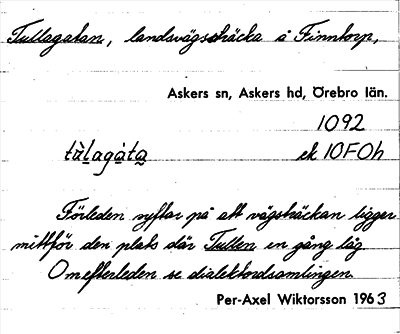 Tullagatan, landsvägssträcka å Finntorp,
Askers sn, Askers hd, Örebro län.
1092
tùl̲aga̲ta̲ ek 10F0h
Förleden syftar på att vägsträckan ligger
mittför den plats där Tullen en gång låg
Om efterleden se dialektordsamlingen.
Per-Axel Wiktorsson 1963